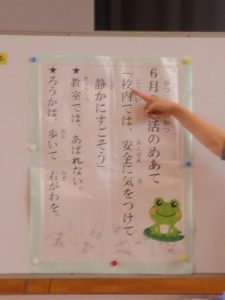 6月 活のめあて
「校内では、安全に気をつけて
静かにすごそう」
★教室では、あばれない。
★ろうかは、歩いて 右がわを。